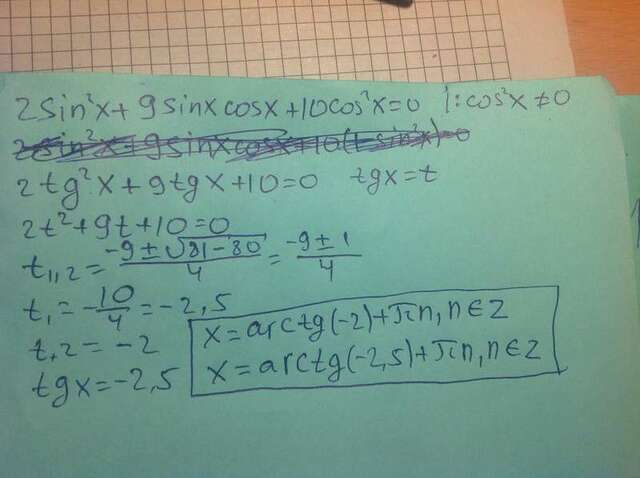 2sin²x + 9sinx cosx + 10cos²x = 0 |: cos²x ≠ 0
2tg²x + 9tgx + 10 = 0 tgx = t
2t² + 9t + 10 = 0
t₁,₂ = (-9 ± √(81 - 80))/4 = (-9 ± 1)/4
t₁ = -10/4 = -2,5
t,₂ = -2
tgx = -2,5
x = arctg(-2) + πn, n ∈ Z
x = arctg(-2,5) + πn, n ∈ Z